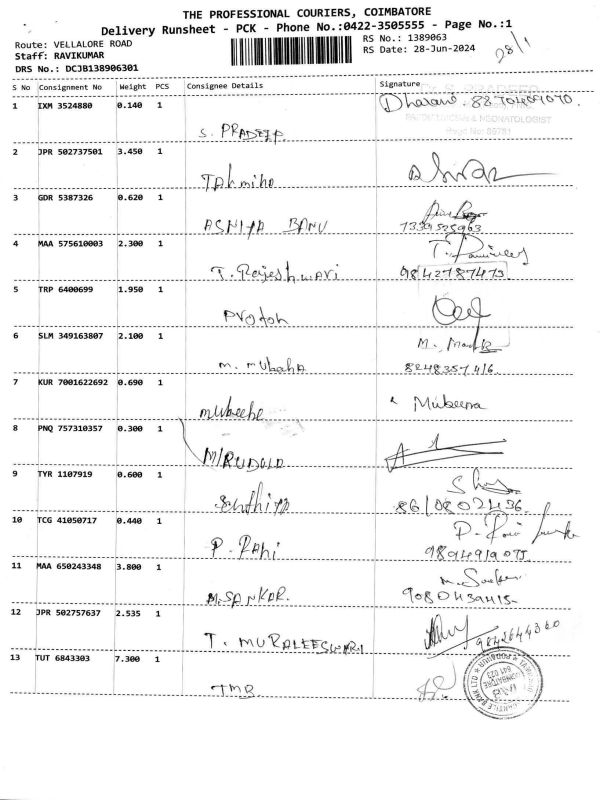 THE PROFESSIONAL COURIERS, COIMBATORE
Delivery Runsheet - PCK - Phone No.:0422-3505555 - Page No.:1
Route: VELLALORE ROAD
Staff: RAVIKUMAR
DRS No.: DCJB138906301
RS No.: 1389063
RS Date: 28-Jun-2024
28/1
S No Consignment No Weight PCS Consignee Details Signature
1 IXM 3524880 0.140 1 S. PRADEEP Dharani 8870409070
& NEONATOLOGIST
2 JPR 502737501 3.450 1 Tahmiha
3 GDR 5387326 0.620 1 ASNIYA BANU 7339525963
4 MAA 575610003 2.300 1 T. Rajeshwari 9842787473
5 TRP 6400699 1.950 1
6 SLM 349163807 2.100 1 m. mubaha M. 8248357416
7 KUR 7001622692 0.690 1 mubeehe Mubeena
8 PNQ 757310357 0.300 1
9 TYR 1107919 0.600 1 8610802436
10 TCG 41050717 0.440 1 P. RANI P. 9894919075
11 MAA 650243348 3.800 1 M. SANKAR. 9080439415
12 JPR 502757637 2.535 1 T. MURALEESWARI 9842644360
13 TUT 6843303 7.300 1 TMB
COIMBATORE
641 023